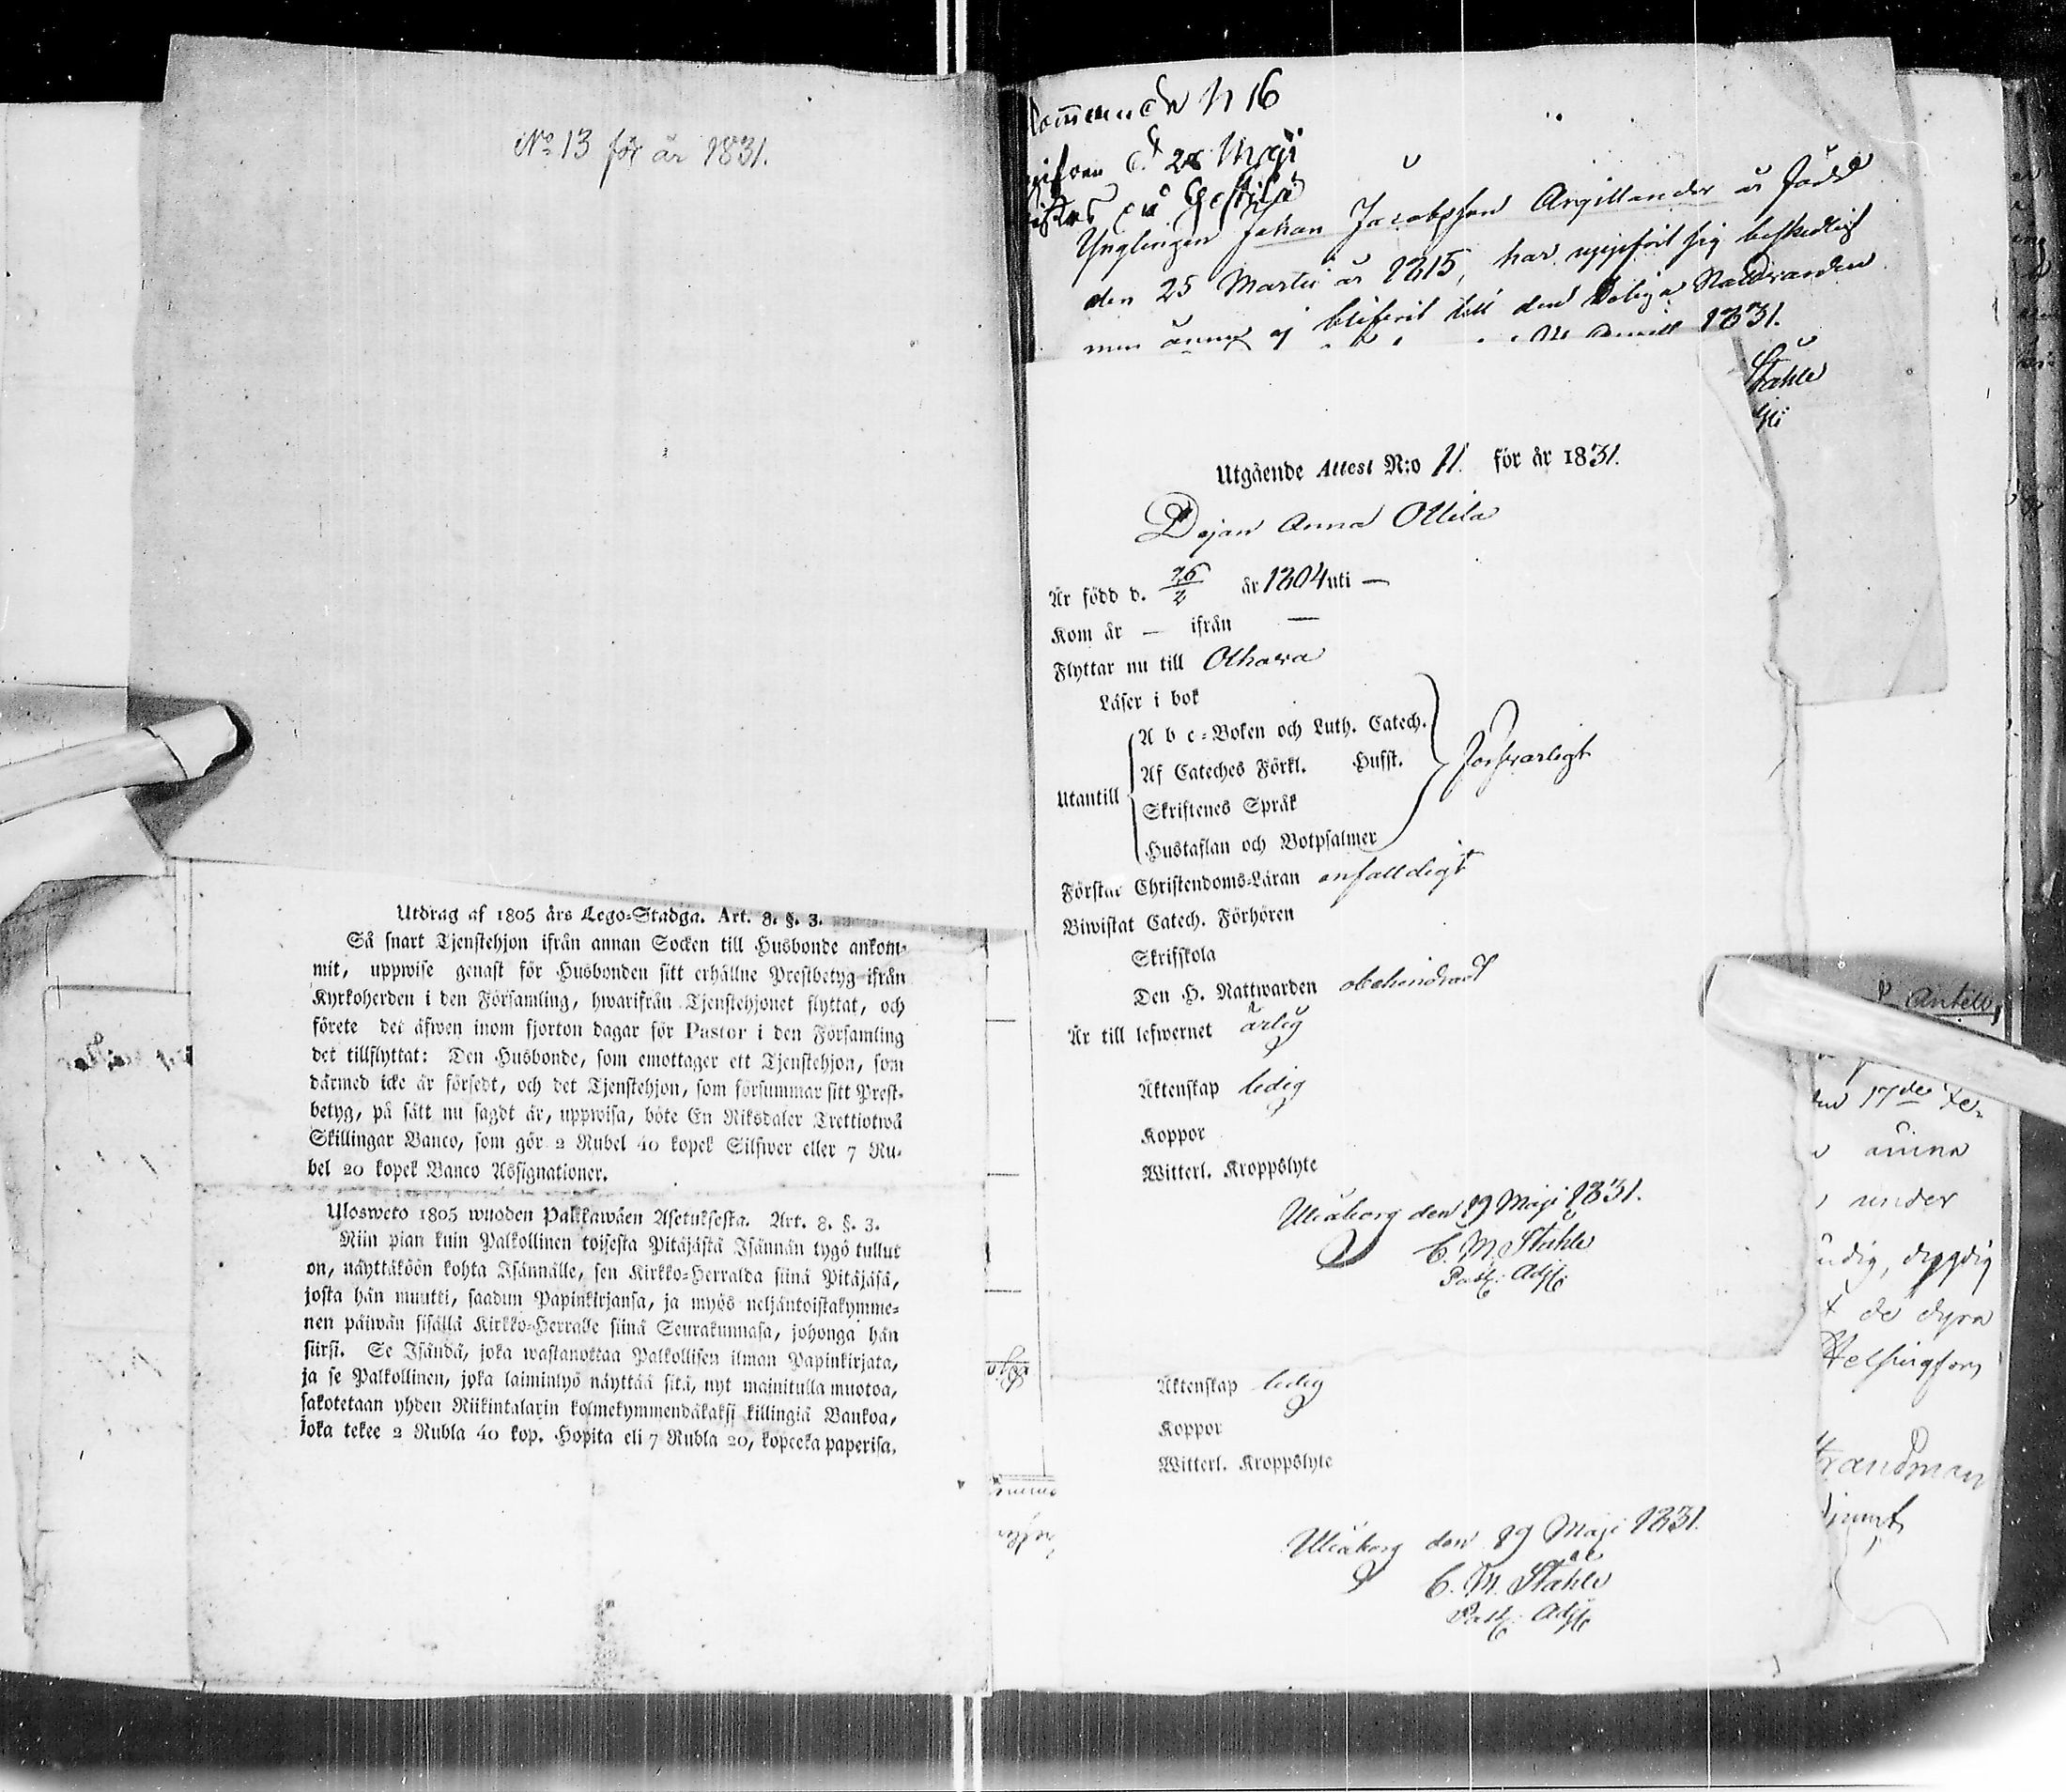 No 13 för år 1831.
Utdrag af 1805 års Lego-Stadga. Art. 8. §. 3.
Så snart Tjenstehjon ifrån annan Socken till Husbonde ankom-
mit, uppwise genast för Husbonden sitt erhållne Prestbetyg ifrån
Kyrkoherden i den Församling, hwarifrån Tjenstehjonet flyttat, och
förete det äfwen inom fjorton dagar för Pastor i den Församling
det tillflyttat: Den Husbonde, som emottager ett Tjenstehjon, som
därmed icke är försedt, och det Tjenstehjon, som försummar sitt Prest-
betyg, på sätt nu sagdt är, uppwisa, böte En Riksdaler Trettiotwå
Skillingar Banco, som gör 2 Rubel 40 kopek Silfwer eller 7 Ru-
bel 20 kopek Banco Assignationer.
Ulosweto 1805 wuoden Palkkawäen Asetuksesta. Art. 8. §. 3.
Niin pian kuin Palkollinen toisesta Pitäjästä Isännän tygö tullut
on, näyttäköön kohta Isännälle, sen Kirkko-Herralda siinä Pitäjäsä,
josta hän muutti, saadun Papinkirjansa, ja myös neljäntoistakymme-
nen päiwän sisällä Kirkko-Herralle siinä Seurakunnasa, johonga hän
siirsi. Se Isändä, joka wastanottaa Palkollisen ilman Papinkirjata,
ja se Palkollinen, joka laiminlyö näyttää sitä, nyt mainitulla muotoa,
sakotetaan yhden Riikintalarin kolmekymmendäkaksi killingiä Bankoa,
joka tekee 2 Rubla 40 kop. Hopita eli 7 Rubla 20, kopceka paperisa.
N 16
28 Maji
Ynglingen Johan Jacobsson Argillander är född
den 25 Martii år 1815, har uppfört sig beskedligt
men ännu ej blifvit till den heliga Nattvarden
1831.
Ståhle
Utgående Attest N:o 11. för år 1831.
Pigan Anna Ollila
Är född d. 26/2 år 1804 uti —
Kom år — ifrån —
Flyttar nu till Olhava
Läser i bok
A b c-Boken och Luth. Catech.
Af Cateches Förkl. Husst.
Utantill
Skriftenes Språk
Hustaflan och Botpsalmer
försvarligt
Förstår Christendoms-Läran enfalldigt
Biwistat Catech. Förhören
Skrifskola
Den H. Nattwarden obehindrad
Är till lefwernet ärlig
Äktenskap ledig
Koppor
Witterl. Kroppslyte
Uleåborg den 19 Maji 1831.
C. M. Ståhle
Past: Adj:
Äktenskap ledig
Koppor
Witterl. Kroppslyte
Uleåborg den 19 Maji 1831.
C. M. Ståhle
Past: Adj:
Antell
17de Fe-
under
dygdig
de dyra
Helsingfors